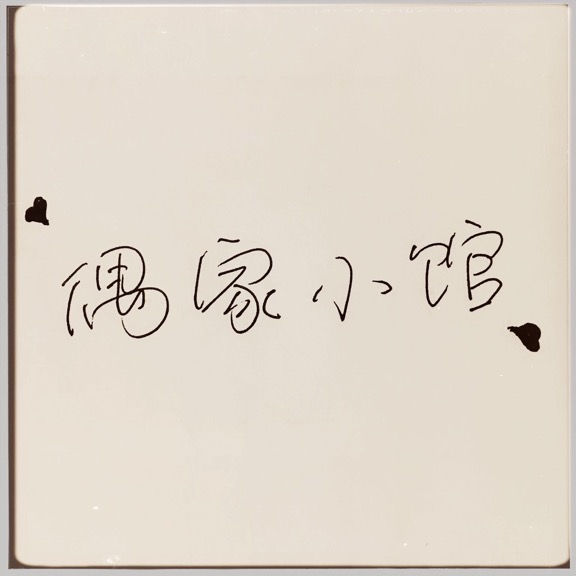 偶家小馆